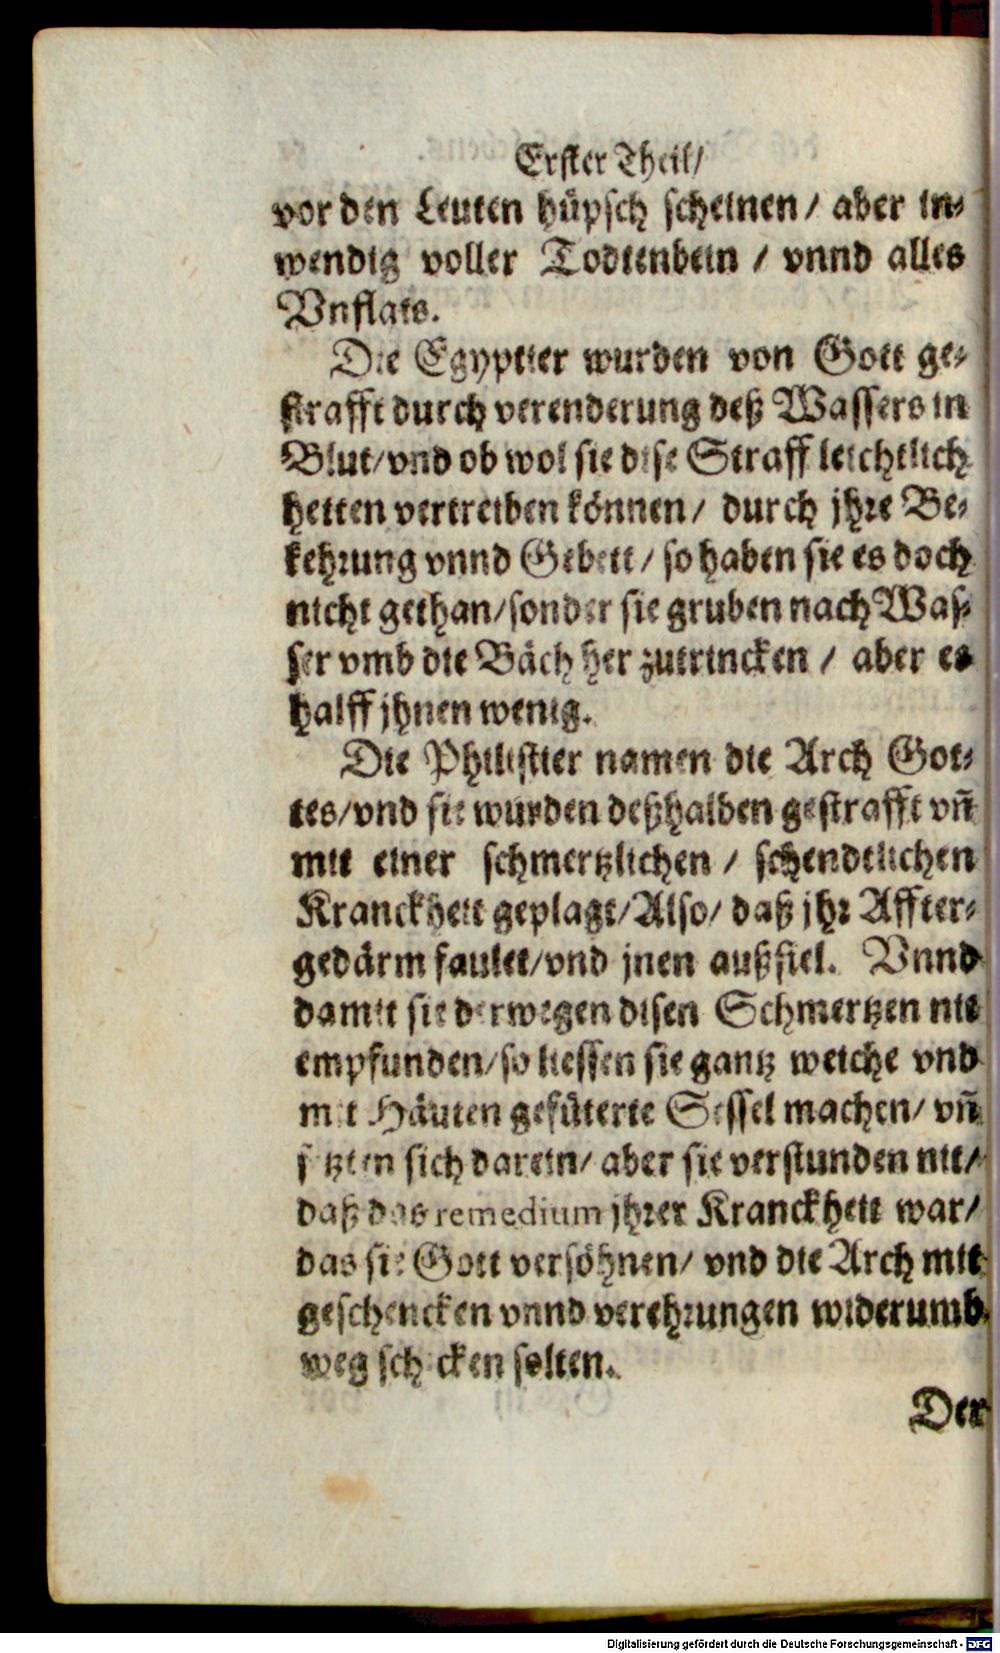 Erster Theil/
vor den Leuten hüpsch scheinen / aber in-
wendig voller Todtenbein / vnnd alles
Vnflats.
Die Egyptier wurden von Gott ge-
strafft durch verenderung deß Wassers in
Blut/vnd ob wol sie dise Straff leichtlich
hetten vertreiben können/ durch jhre Be-
kehrung vnnd Gebett/so haben sie es doch
nicht gethan/sonder sie gruben nach Was-
ser vmb die Bäch her zutrincken / aber es
halff jhnen wenig.
Die Philistier namen die Arch Got-
tes/vnd sie wurden deßhalben gestrafft vn̄
mit einer schmertzlichen / schendtlichen
Kranckheit geplagt/Also/ daß jhr Affter-
gedärm faulet/vnd jnen außfiel. Vnnd
damit sie derwegen disen Schmertzen nit
empfunden/so liessen sie gantz weiche vnd
mit Häuten gefüterte Sessel machen/ vn̄
setzten sich darein/ aber sie verstunden nit/
daß das remedium jhrer Kranckheit war/
das sie Gott versöhnen/ vnd die Arch mit
geschencken vnnd verehrungen widerumb
weg schicken solten.
Der
Digitalisierung gefördert durch die Deutsche Forschungsgemeinschaft - DFG